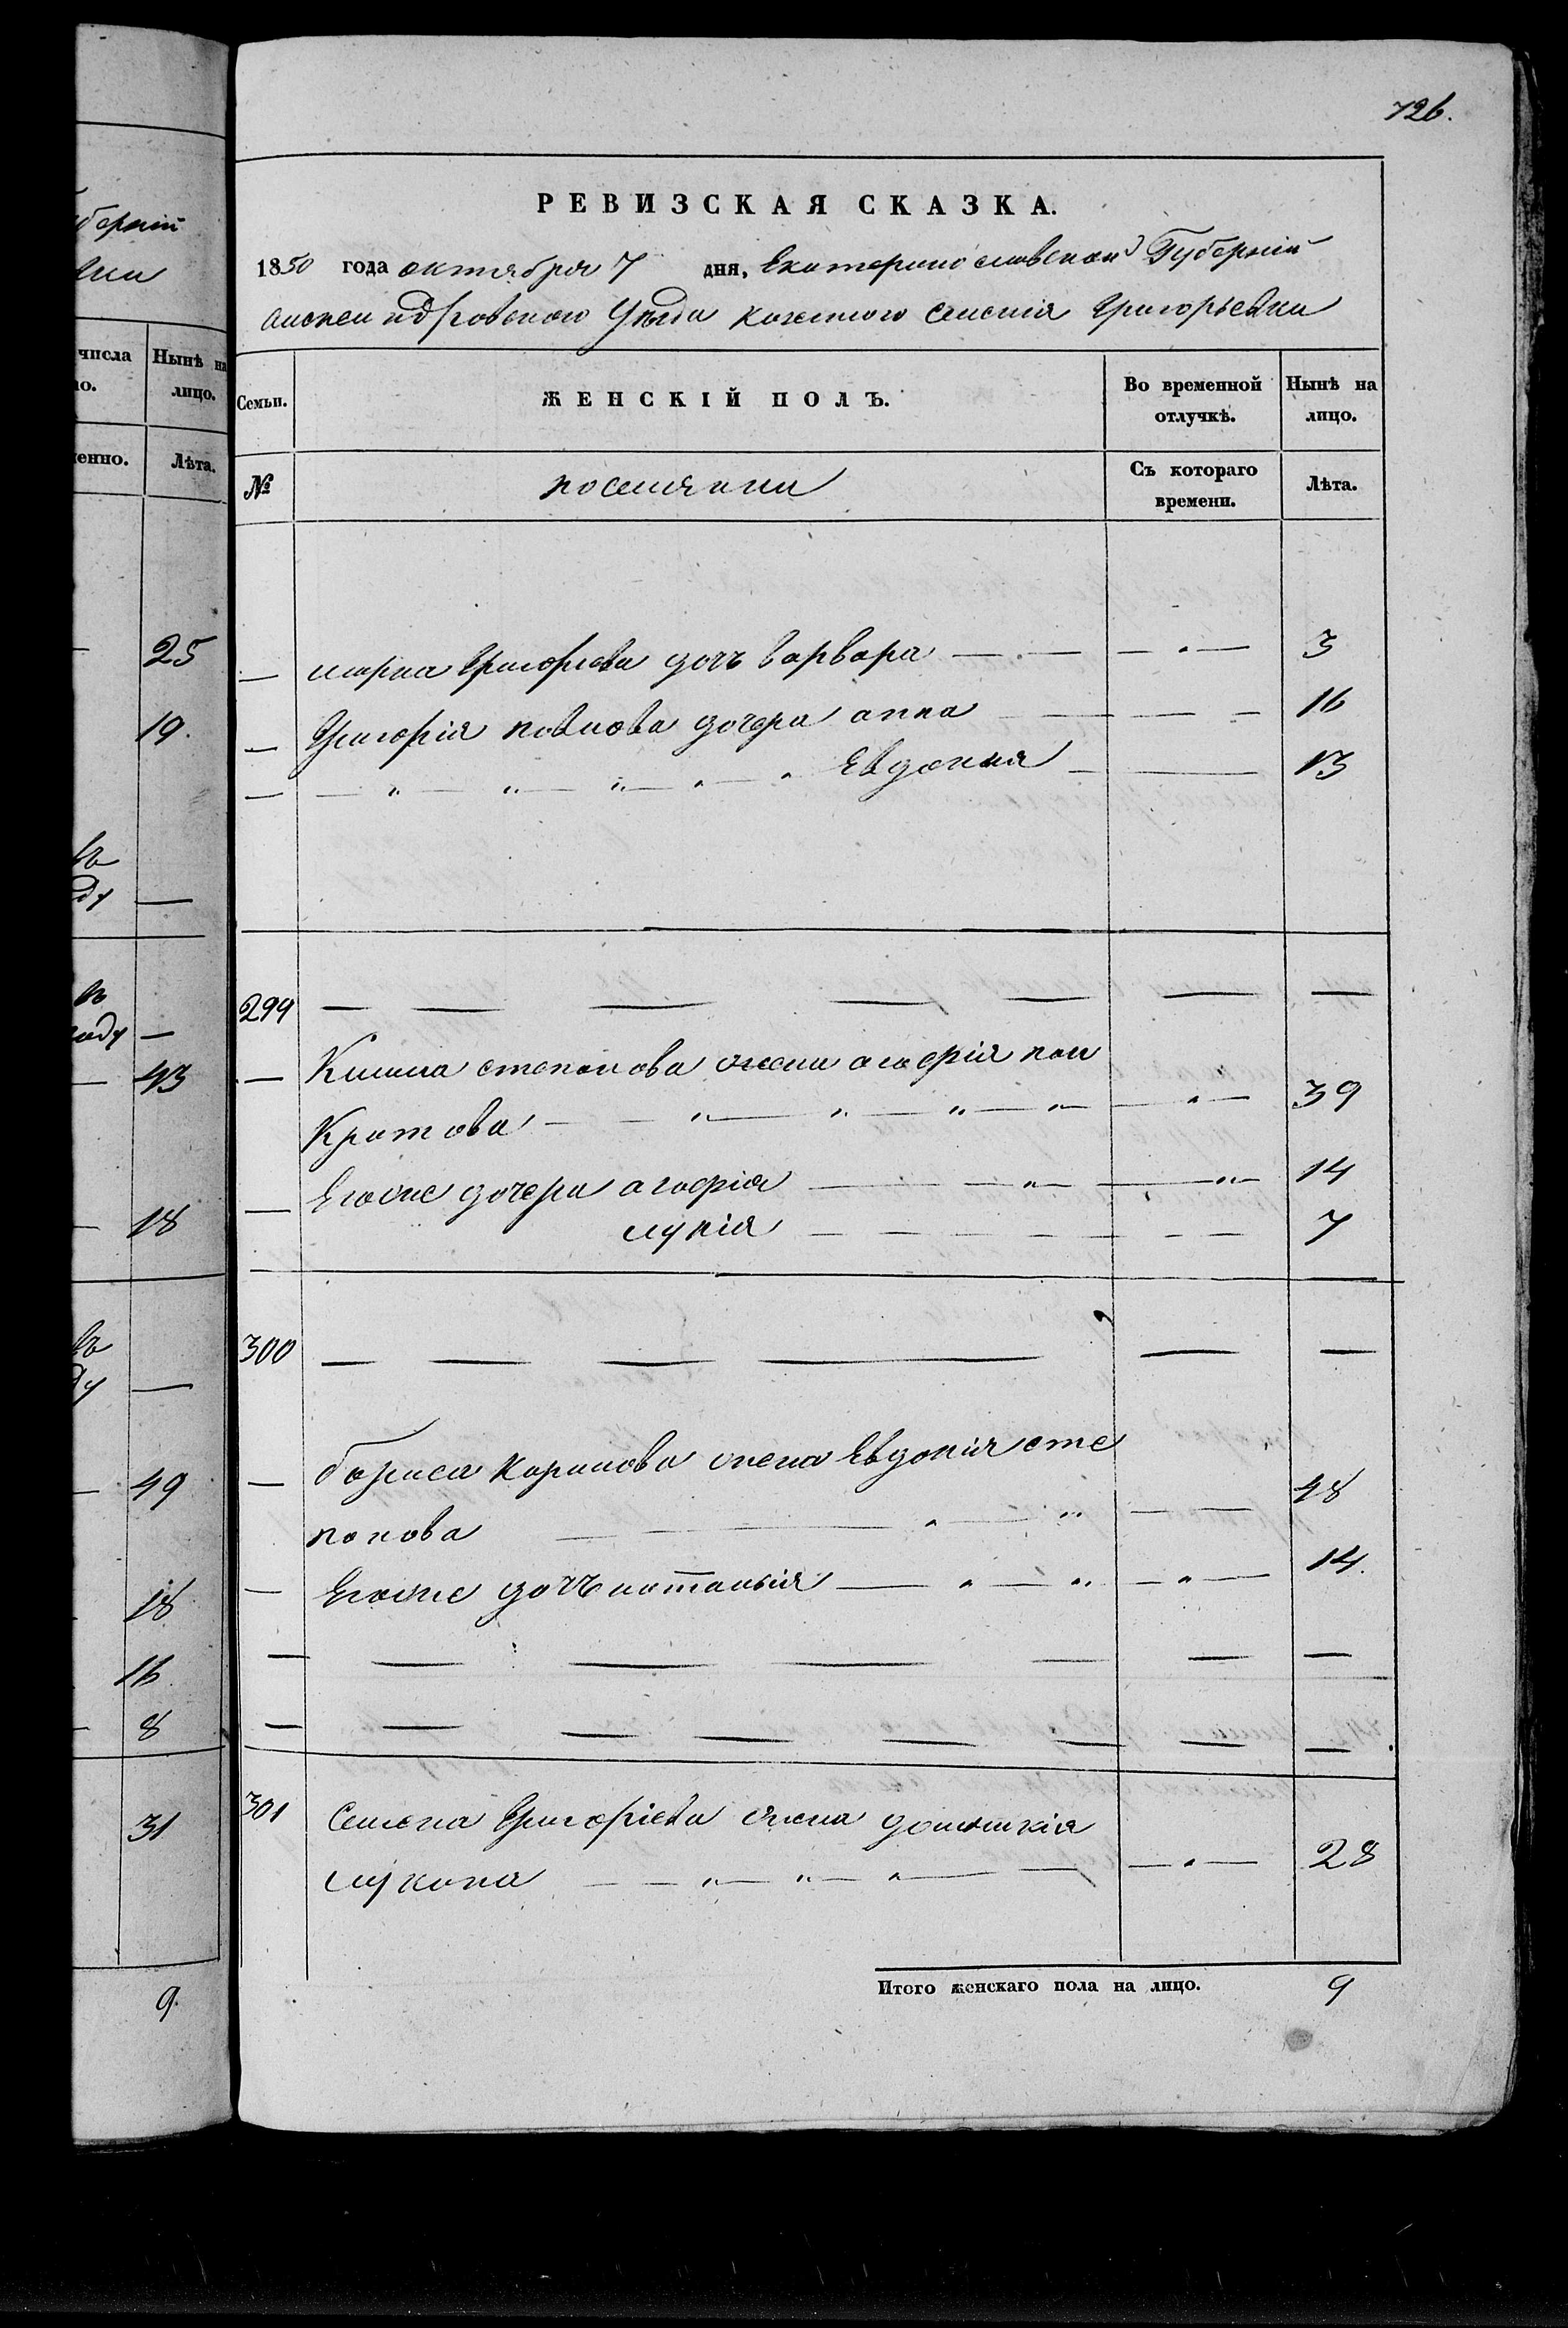 726.
РЕВИЗСКАЯ СКАЗКА.
1850 года октября 7 дня, Екатеринославской Губерній
Александровского Уезда казенного селенія Григорьевки
Семьи.
ЖЕНСКІЙ ПОЛЪ.
Во временной отлучкѣ.
Нынѣ на лицо.
№
поселянки
Съ котораго времени.
Лѣта.
— марка Григорьева дочъ варвара — — 3
— Григорія павлова дочера анна — — 16
— — „ — „ — „ — „ Евдокия — — 13
299 — — — — — —
— Клима степанова жена агафія пан
Кратова — „ — „ — „ — „ — „ — 39
— Егоже дочера агафія — — „ — „ — 14
лукія — — — — — — — 7
300 — — — — — —
— бориса Карпова жена Евдокія сте
панова — — „ — „ — — 48
— Егоже дочъ наталья — „ — „ — „ — 14.
— — — — — — —
— — — — — — — — —
301 Семена Григоріева жена домникія
лукина — — „ — „ — „ — — „ — 28
Итого женскаго пола на лицо. 9
уберній
вки
числа
Нынѣ на лицо.
Лѣта.
25
19.
ду
—
году —
43
18
ду —
49
18
16
8
31
9.